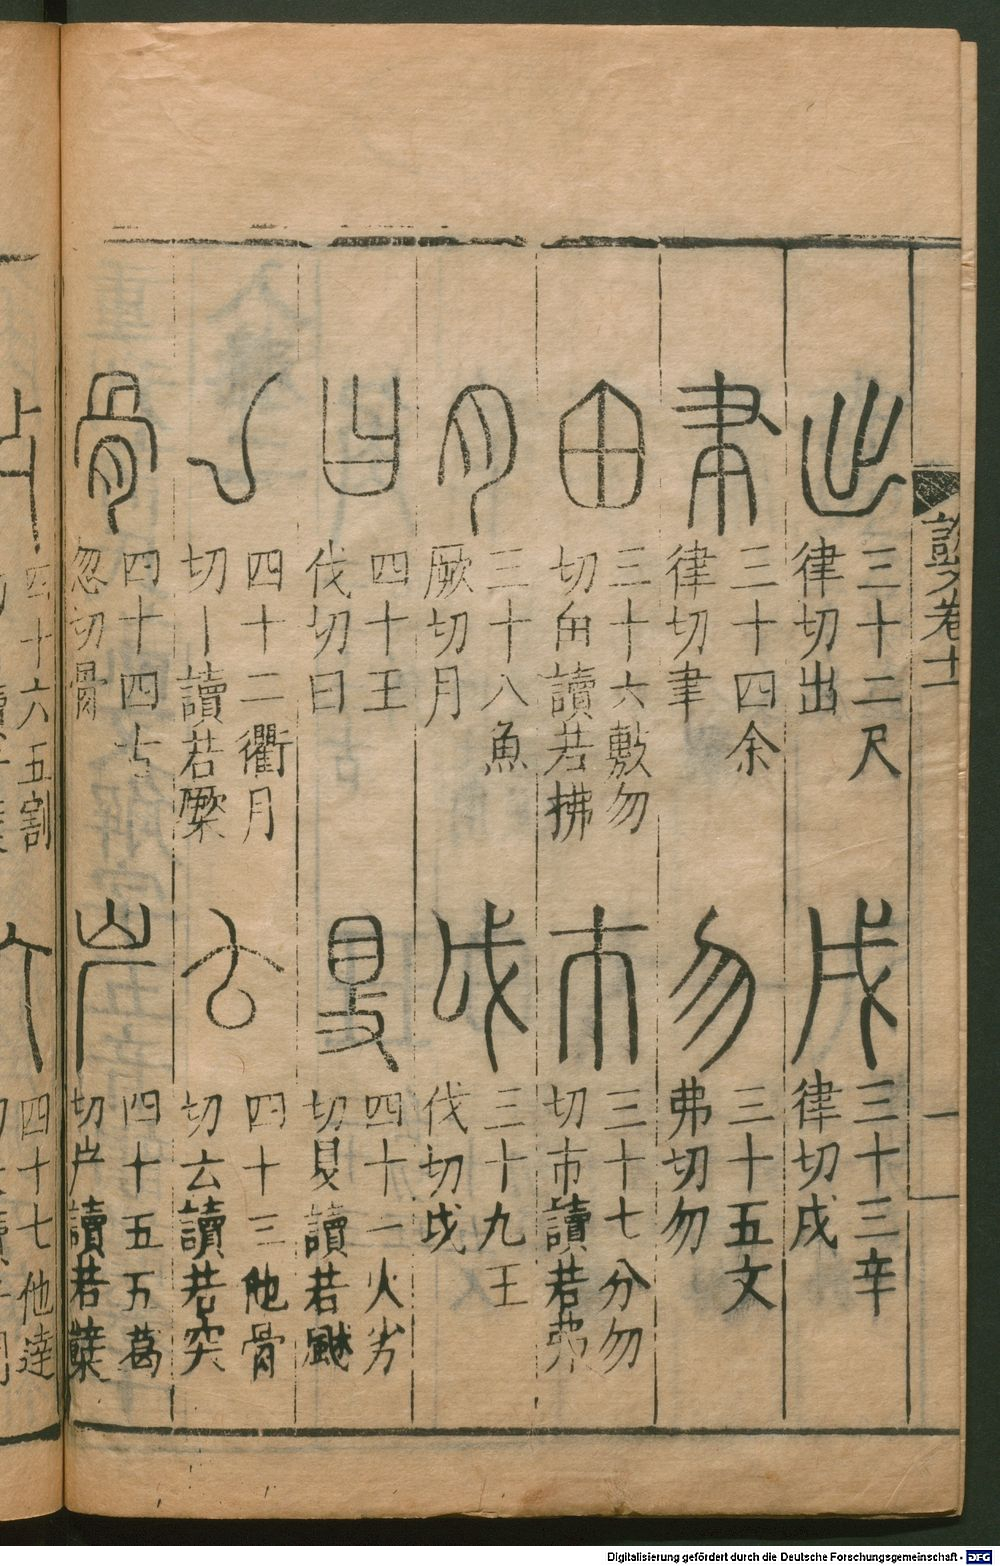 說文卷十一
一
出
三十二尺
律切出
戌
三十三辛
律切戌
聿
三十四余
律切聿
勿
三十五文
弗切勿
甶
三十六敷勿
切甶讀若拂
巿
三十七分勿
切巿讀若弗
月
三十八魚
厥切月
戉
三十九王
伐切戉
曰
四十王
伐切曰
𥄎
四十一火劣
切𥄎讀若颰
亅
四十二衢月
切亅讀若橜
𠫓
四十三他骨
切𠫓讀若突
骨
四十四古
忽切骨
屵
四十五五葛
切屵讀若櫱
四十六五割
四十七他達
Digitalisierung gefördert durch die Deutsche Forschungsgemeinschaft - DFG